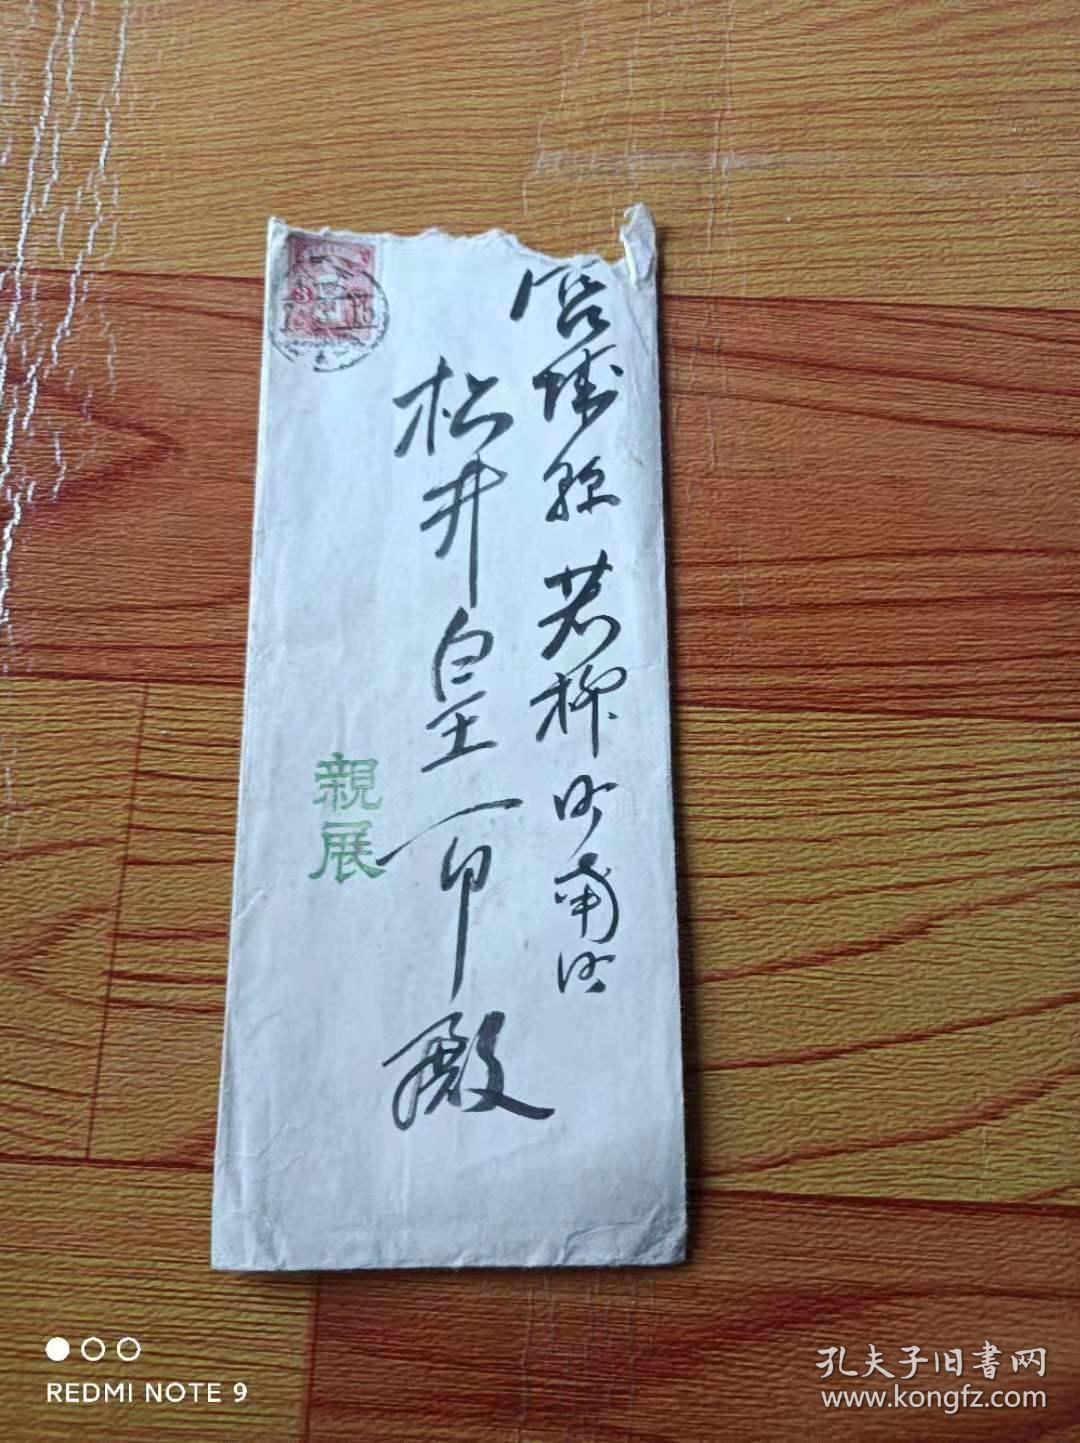 宮城縣若柳町南町
松井皇一郎殿
親展
3
REDMI NOTE 9
孔夫子旧書网
www.kongfz.com